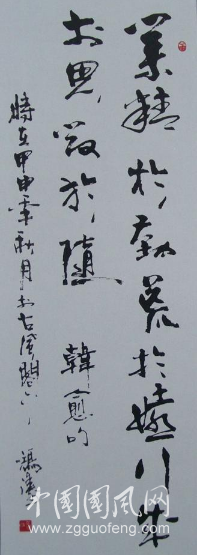 業精於勤荒於嬉行成
於思毀於隨 韓愈句
時在甲申年秋月於古風閣
中國國風网
www.zgguofeng.com